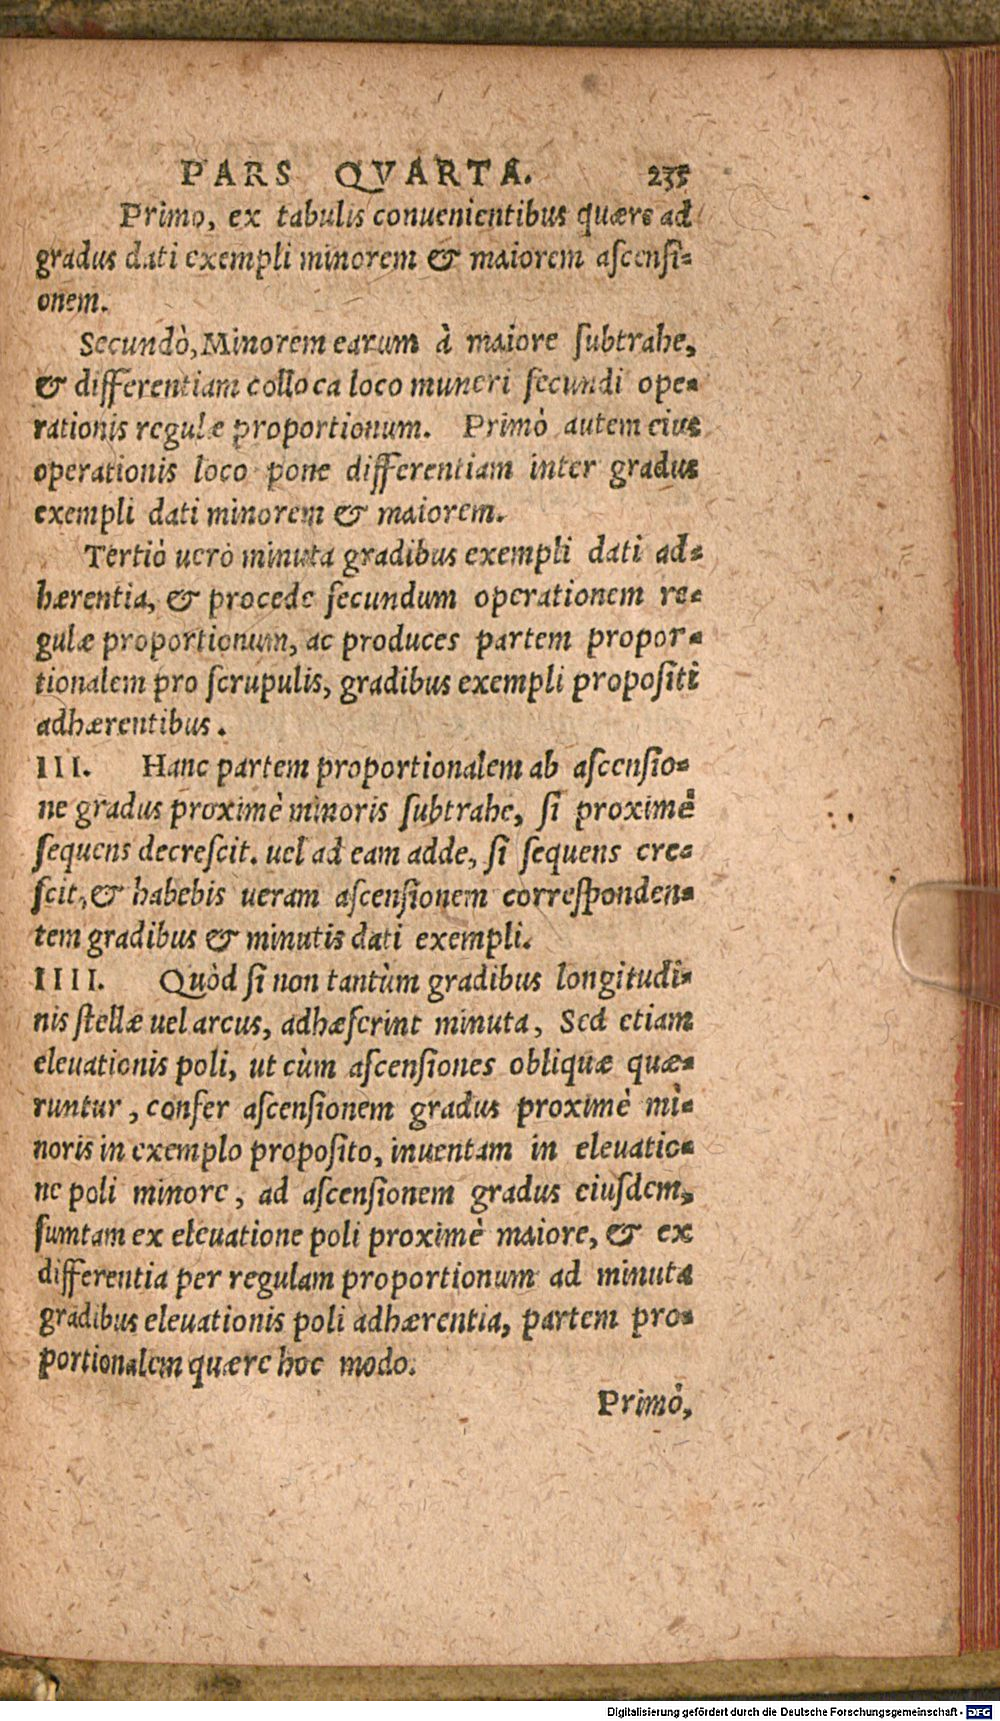 PARS QVARTA. 235
Primo, ex tabulis conuenientibus quære ad
gradus dati exempli minorem & maiorem aſcenſi-
onem.
Secundò, Minorem earum à maiore ſubtrahe,
& differentiam colloca loco muneri ſecundi ope-
rationis regulæ proportionum. Primò autem eius
operationis loco pone differentiam inter gradus
exempli dati minorem & maiorem.
Tertiò uerò minuta gradibus exempli dati ad-
hærentia, & procede ſecundum operationem re-
gulæ proportionum, ac produces partem propor-
tionalem pro ſcrupulis, gradibus exempli propoſiti
adhærentibus.
III. Hanc partem proportionalem ab aſcenſio-
ne gradus proximè minoris ſubtrahe, ſi proximè
ſequens decreſcit. uel ad eam adde, ſi ſequens cre-
ſcit, & habebis ueram aſcenſionem correſponden-
tem gradibus & minutis dati exempli.
IIII. Quòd ſi non tantùm gradibus longitudi-
nis ſtellæ uel arcus, adhæſerint minuta, Sed etiam
eleuationis poli, ut cùm aſcenſiones obliquæ quæ-
runtur, confer aſcenſionem gradus proximè mi-
noris in exemplo propoſito, inuentam in eleuatio-
ne poli minore, ad aſcenſionem gradus eiuſdem,
ſumtam ex eleuatione poli proximè maiore, & ex
differentia per regulam proportionum ad minuta
gradibus eleuationis poli adhærentia, partem pro-
portionalem quære hoc modo.
Primò,
Digitalisierung gefördert durch die Deutsche Forschungsgemeinschaft - DFG